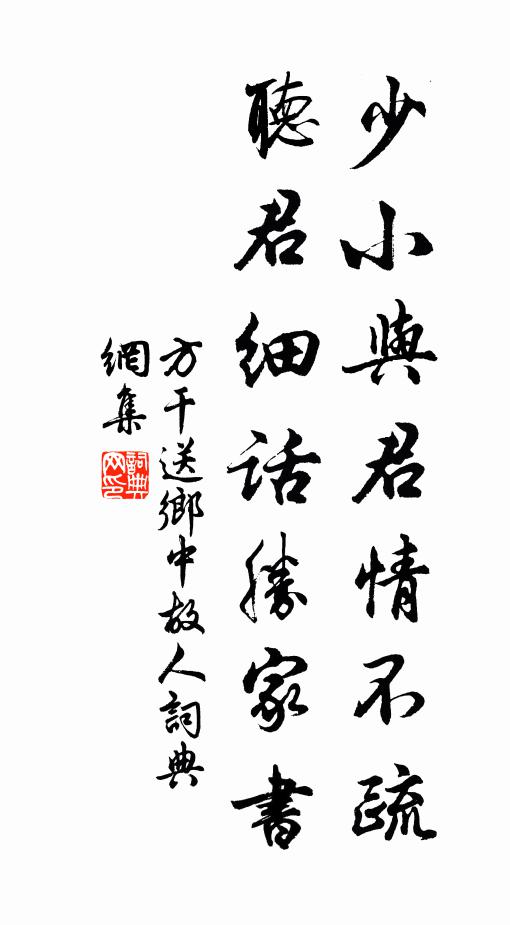 少小與君情不疏
聽君細話勝家書
方干送鄉中故人詞典
網集
詞典網印